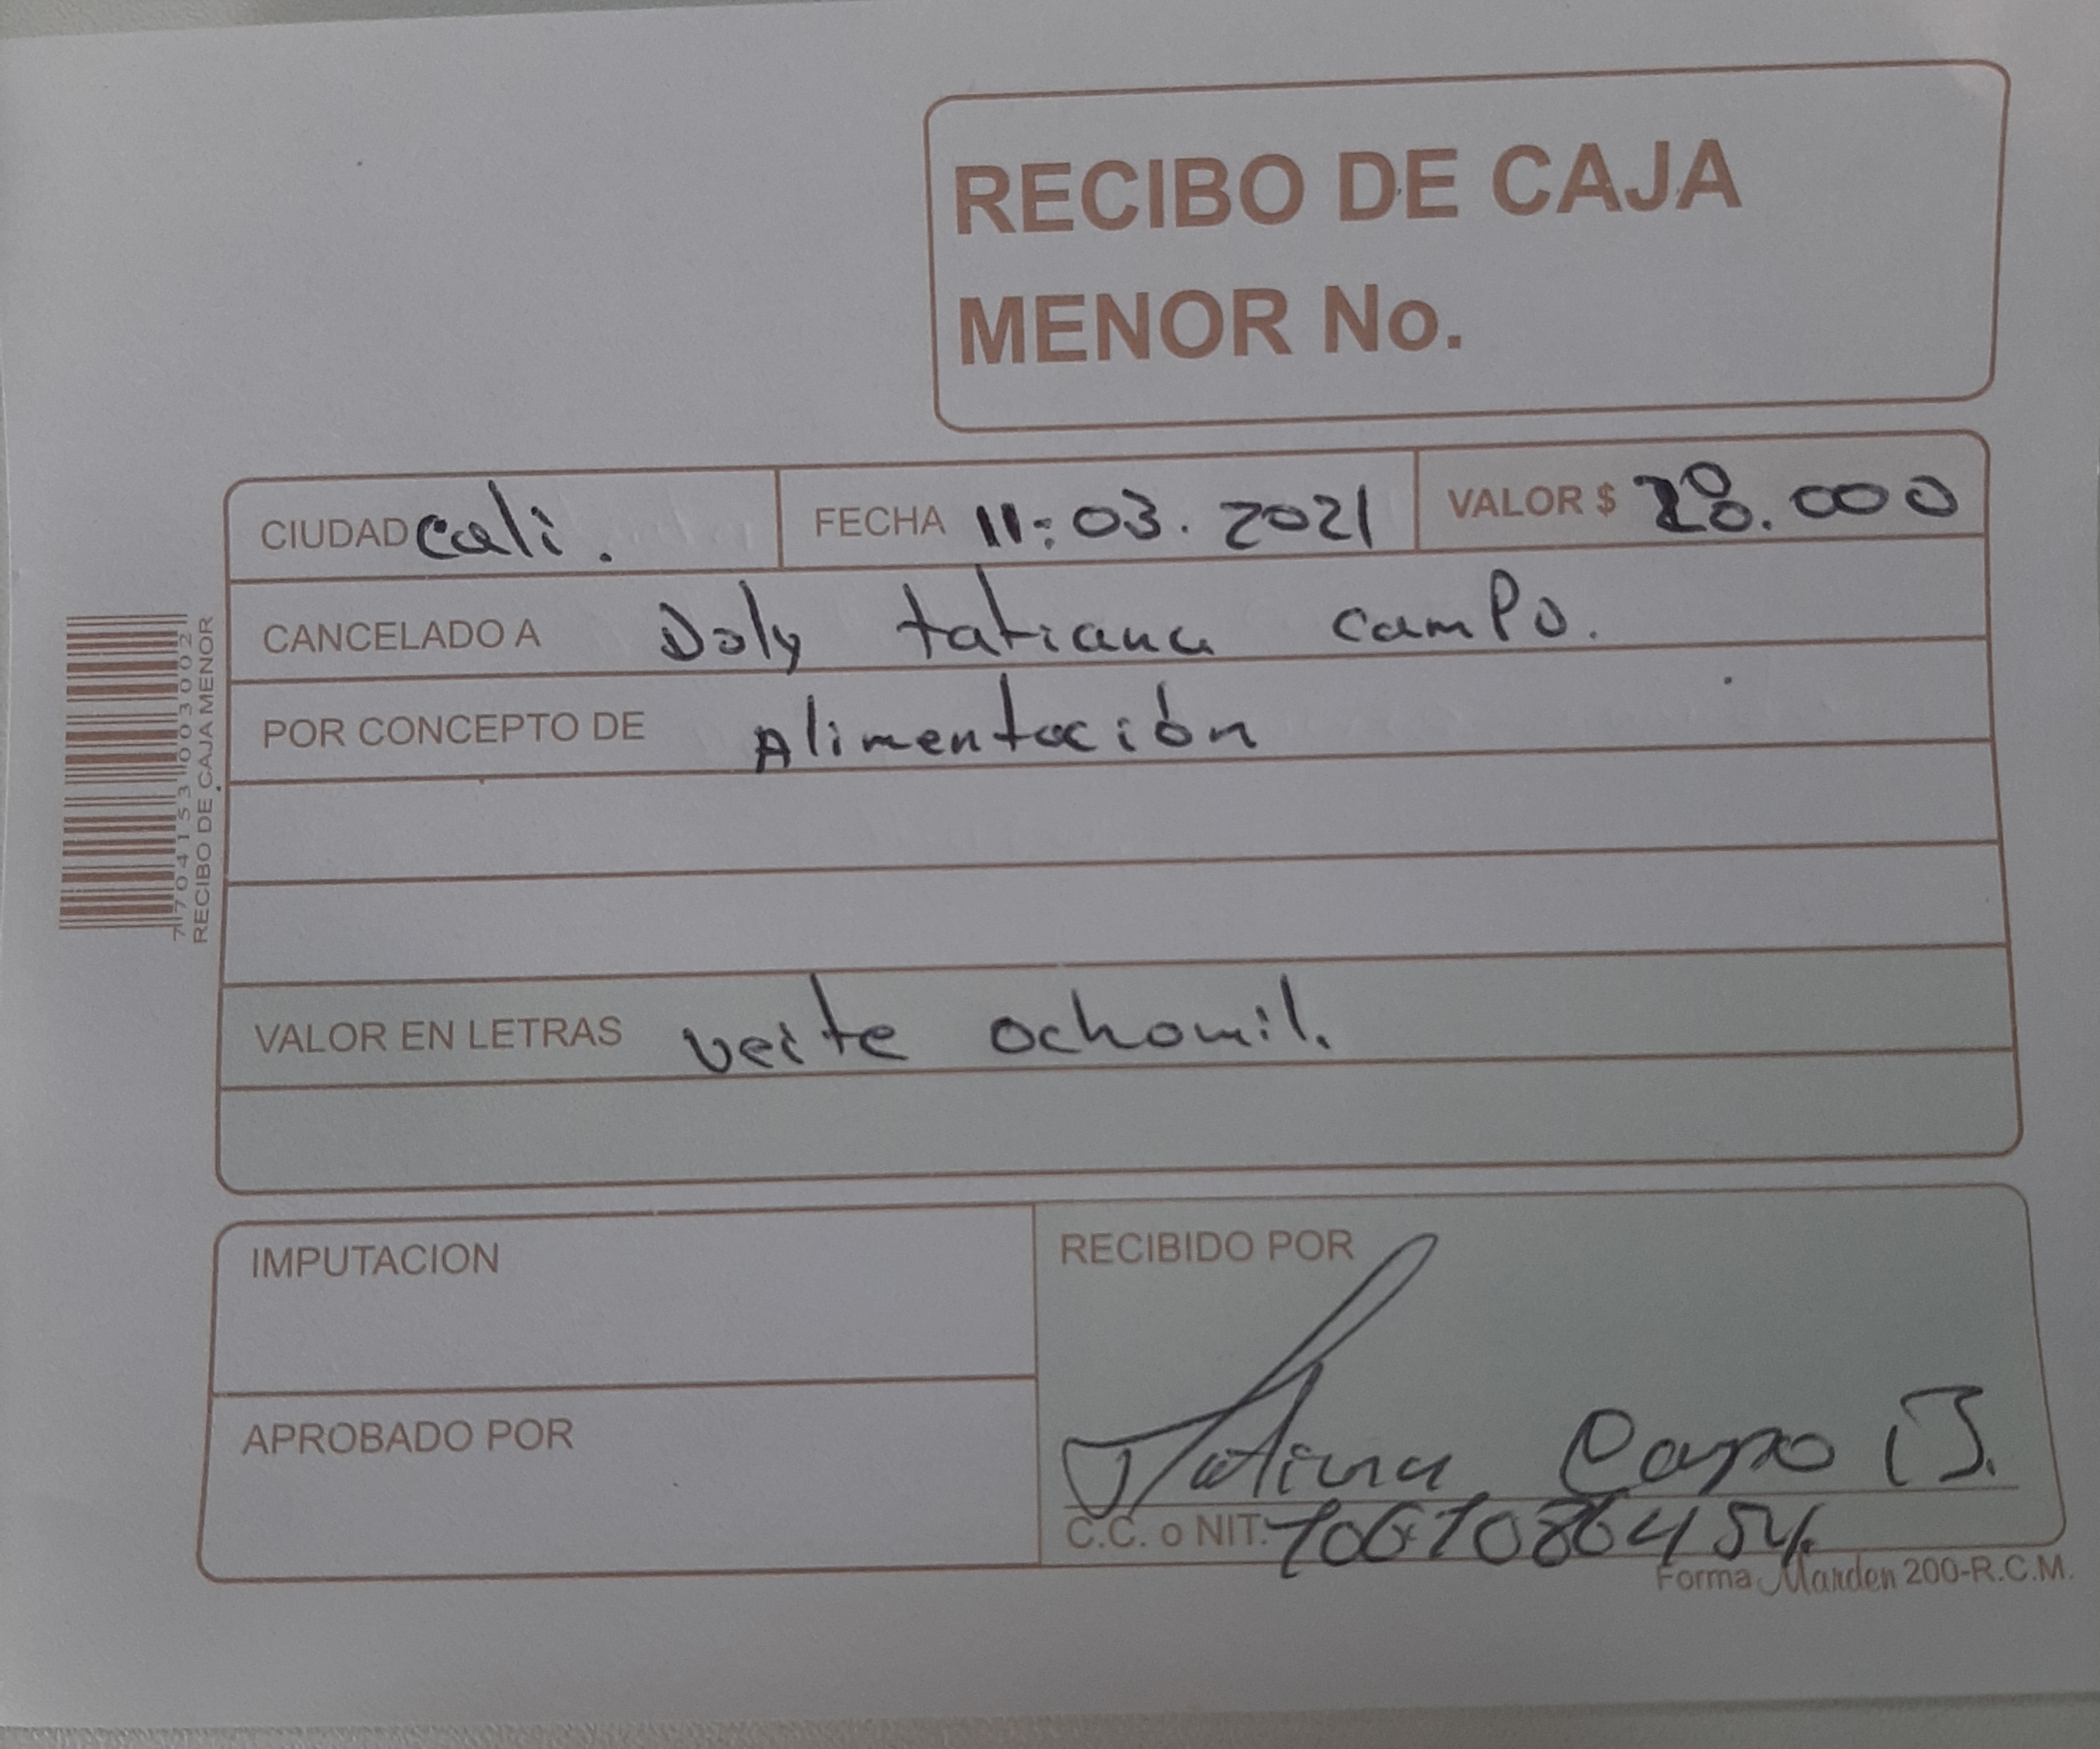 RECIBO DE CAJA
MENOR No.
CIUDAD Cali. FECHA 11:03.2021 VALOR $ 28.000
CANCELADO A Doly tatiana camPo.
POR CONCEPTO DE Alimentación
VALOR EN LETRAS veite ochomil.
IMPUTACION
APROBADO POR
RECIBIDO POR
Tatiana Campo
C.C. o NIT.
Forma Marden 200-R.C.M.
7704153003002
RECIBO DE CAJA MENOR